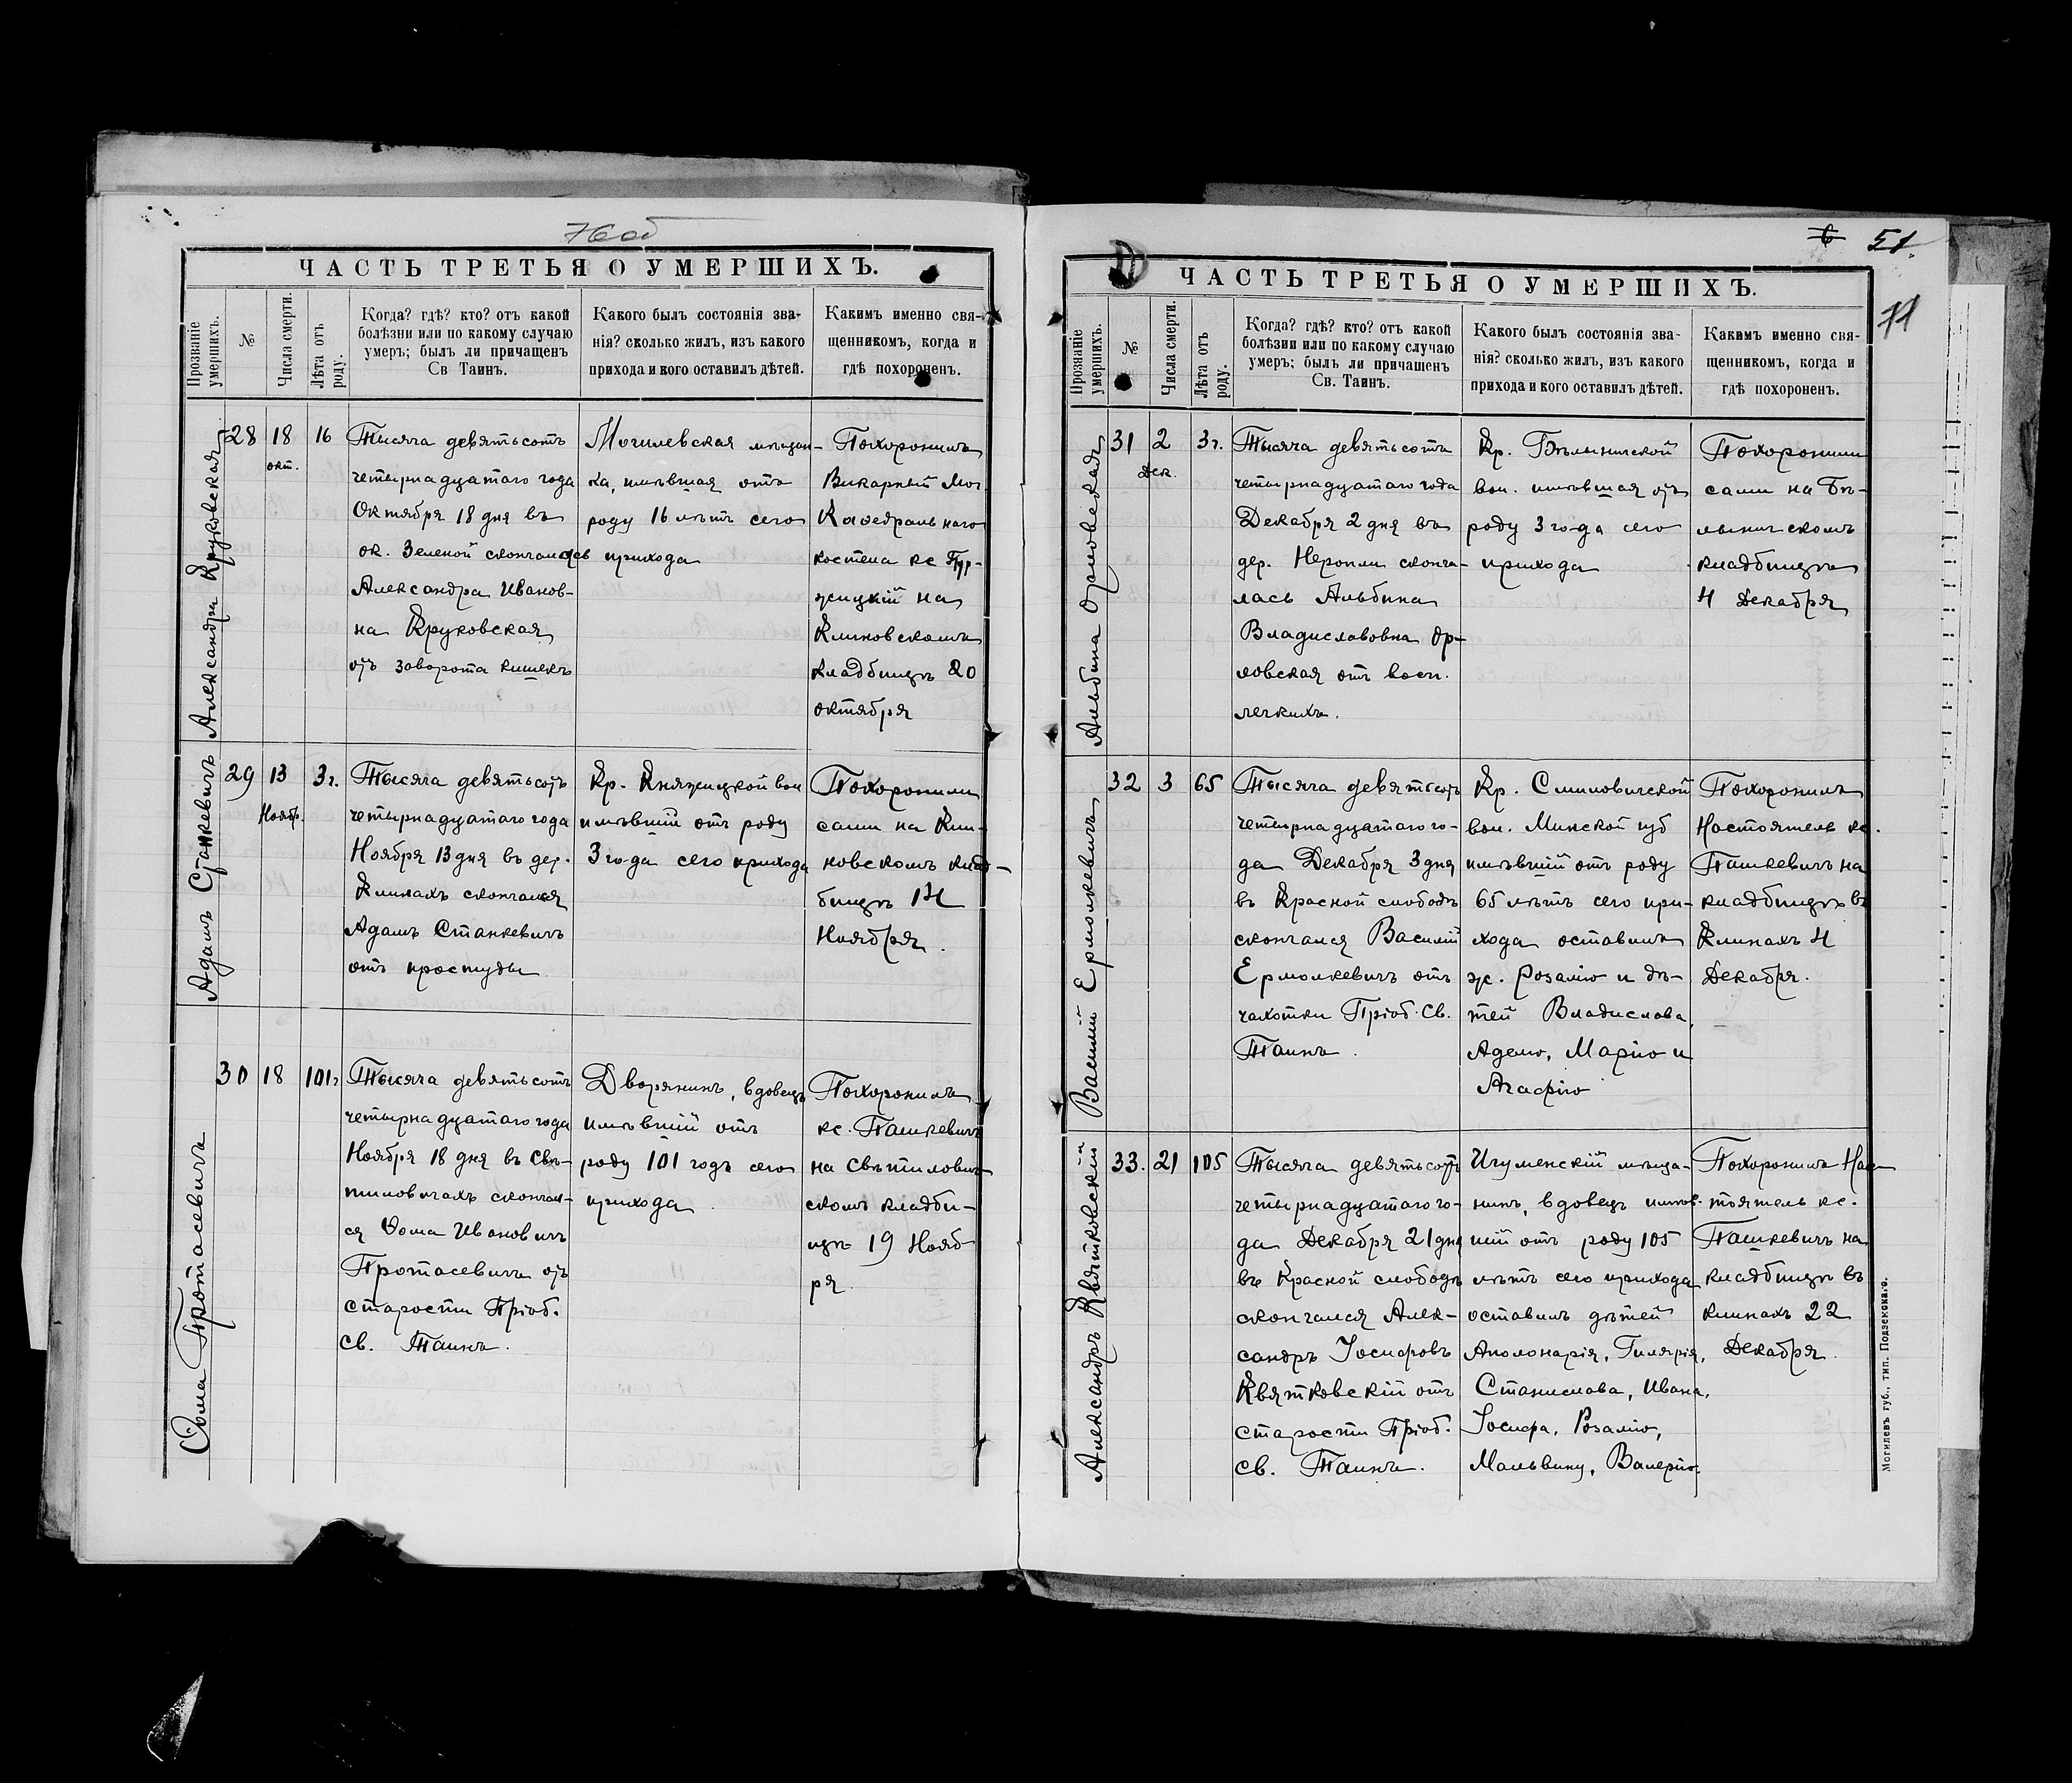 76 об
ЧАСТЬ ТРЕТЬЯ О УМЕРШИХЪ.
Прозваніе умершихъ.
№
Числа смерти.
Лѣта отъ роду.
Когда? гдѣ? кто? отъ какой
болѣзни или по какому случаю
умеръ; былъ ли причащенъ
Св Таинъ.
Какого былъ состоянія зва-
нія? сколько жилъ, изъ какого
прихода и кого оставилъ дѣтей.
Какимъ именно свя-
щенникомъ, когда и
гдѣ похороненъ.
Александра Круковская
28
18
окт.
16
Тысяча девятьсотъ
четырнадцатаго года
Октября 18 дня въ
ок. Зеленой скончалась
Александра Иванов-
на Круковская
отъ заворота кишекъ
Могилевская мѣщан-
ка, имѣвшая отъ
роду 16 лѣтъ сего
прихода
Похоронилъ
Викарный Мог.
Каѳедральнаго
костела кс
жицкій на
Климовскомъ
кладбищѣ 20
октября
Адамъ Станкевичъ
29
13
Ноябр.
3 г.
Тысяча девятьсотъ
четырнадцатаго года
Ноября 13 дня въ дер.
Климахъ скончался
Адамъ Станкевичъ
отъ простуды
Кр. Княжицкой вол
имѣвшій отъ роду
3 года сего прихода
Похоронили
сами на Кли-
новскомъ клад-
бищѣ 14
Ноября.
Ѳома Протасевичъ
30
18
101 г
Тысяча девятьсотъ
четырнадцатаго года
Ноября 18 дня въ Свѣ-
тиловичахъ скончал-
ся Ѳома Ивановичъ
Протасевичъ отъ
старости Пріоб.
Св. Таинъ.
Дворянинъ, вдовецъ
имѣвшій отъ
роду 101 годъ сего
прихода
Похоронилъ
кс. Пашкевичъ
на Свѣтилович-
скомъ кладби-
щѣ 19 Нояб
ря
51.
77
ЧАСТЬ ТРЕТЬЯ О УМЕРШИХЪ.
Прозваніе умершихъ.
№
Числа смерти.
Лѣта отъ роду.
Когда? гдѣ? кто? отъ какой
болѣзни или по какому случаю
умеръ; былъ ли причащенъ
Св. Таинъ.
Какого былъ состоянія зва-
нія? сколько жилъ, изъ какого
прихода и кого оставилъ дѣтей.
Какимъ именно свя-
щенникомъ, когда и
гдѣ похороненъ.
Альбина Орловская
31
2
Дек.
3 г.
Тысяча девятьсотъ
четырнадцатаго года
Декабря 2 дня въ
дер. Неропли сконча-
лась Альбина
Владиславовна Ор-
ловская отъ восп.
легкихъ.
Кр. Бѣлыничской
вол. имѣвшая отъ
роду 3 года сего
прихода
Похоронили
сами на Бѣ-
лыничскомъ
кладбищѣ
4 Декабря
Василій Ермолкевичъ
32
3
65
Тысяча девятьсотъ
четырнадцатаго го-
да Декабря 3 дня
въ Красной слободѣ
скончался Василій
Ермолкевичъ отъ
чахотки Пріоб. Св.
Таинъ.
Кр. Смиловичской
вол. Минской губ
имѣвшій отъ роду
65 лѣтъ сего при-
хода оставилъ
ж. Розалію и дѣ-
тей Владислава,
Аделю, Марію и
Агафію
Похоронилъ
Настоятель кс.
Пашкевичъ на
кладбищѣ въ
Климахъ 4
Декабря.
Александръ Квятковскій
33.
21
105
Тысяча девятьсотъ
четырнадцатаго го-
да Декабря 21 дня
въ Красной слободѣ
скончался Алек-
сандръ Іосифовъ
Квятковскій отъ
старости Пріоб.
Св. Таинъ.
Игуменскій мѣща-
нинъ, вдовецъ имѣв-
шій отъ роду 105
лѣтъ сего прихода
оставилъ дѣтей
Аполонарія, Гилярія,
Станислава, Ивана,
Іосифа, Розалію,
Мальвину, Валерію.
Похоронилъ Нас-
тоятель кс.
Пашкевичъ на
кладбищѣ въ
климахъ 22
Декабря.
Могилевъ губ., тип. Подземскаго.